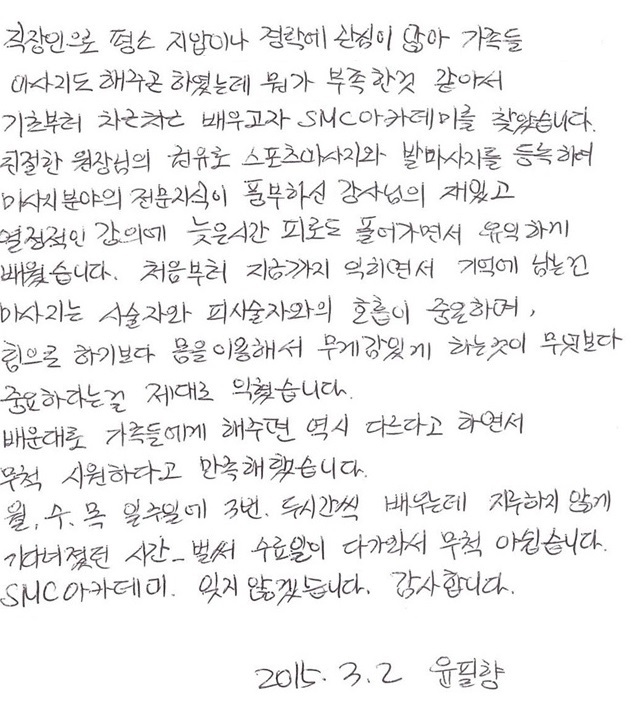 직장인으로 평소 지압이나 경락에 관심이 많아 가족들
마사지도 해주곤 하였는데 뭔가 부족한것 같아서
기초부터 차근차근 배우고자 SMC아카데미를 찾았습니다.
친절한 원장님의 권유로 스포츠마사지와 발마사지를 등록하여
마사지분야의 전문지식이 풍부하신 강사님의 재밌고
열정적인 강의에 늦은시간 피로도 풀어가면서 유익하게
배웠습니다. 처음부터 지금까지 익히면서 기억에 남는건
마사지는 시술자와 피시술자와의 호흡이 중요하며,
힘으로 하기보다 몸을이용해서 무게감있게 하는것이 무엇보다
중요하다는걸 제대로 익혔습니다.
배운대로 가족들에게 해주면 역시 다르다고 하면서
무척 시원하다고 만족해했습니다.
월, 수, 목 일주일에 3번. 두시간씩 배우는데 지루하지 않게
기다려졌던 시간_ 벌써 수료일이 다가와서 무척 아쉽습니다.
SMC아카데미. 잊지 않겠습니다. 감사합니다.
2015. 3. 2 윤필향